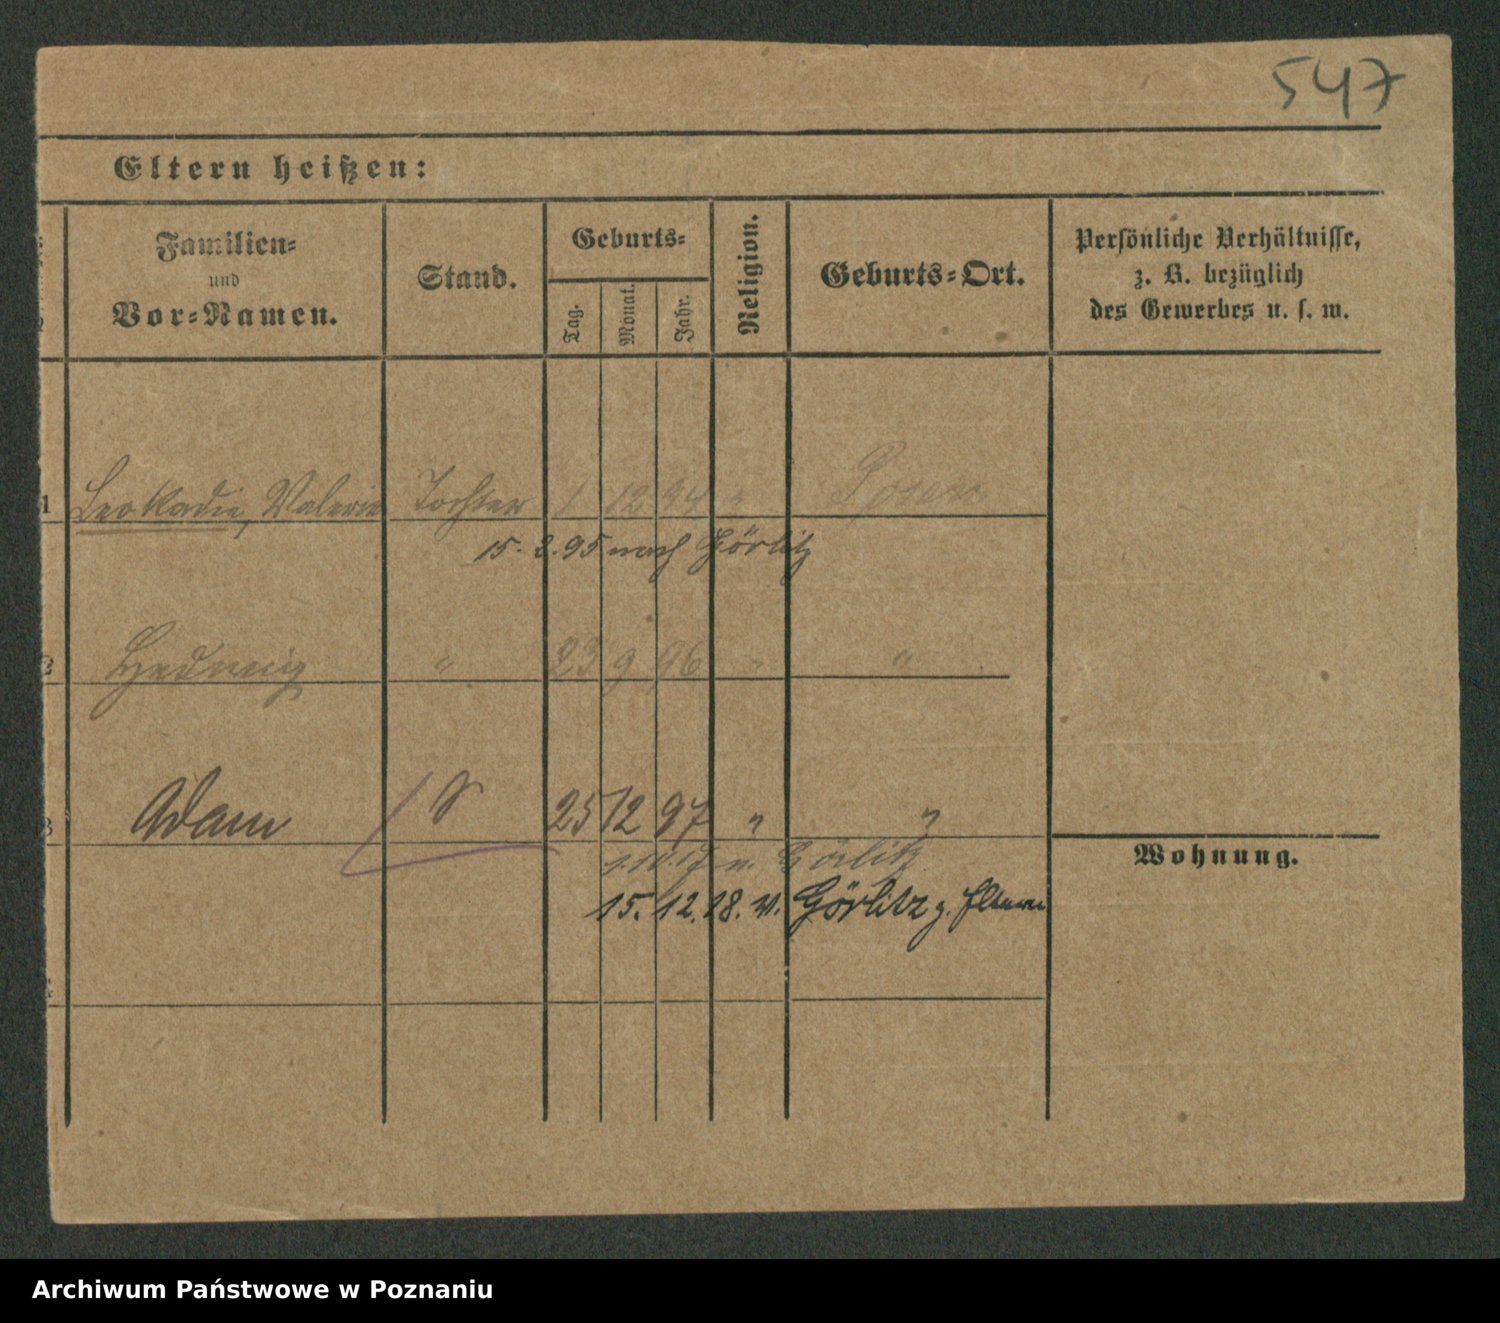 547
Eltern heißen:
Familien=
und
Vor=Namen.
Stand.
Geburts=
Tag.
Monat.
Jahr.
Religion.
Geburts=Ort.
Persönliche Verhältnisse,
z. B. bezüglich
des Gewerbes u. s. w.
1 Leokadia, Valeria Tochter 1 12 94 " Posen
15. 2. 95 nach Görlitz
2 Hedwig " 23 9 96 " "
3 Adam S 25 12 97 " "
Wohnung.
17 n. Görlitz
15. 12. 18. v. Görlitz z. Eltern
Archiwum Państwowe w Poznaniu